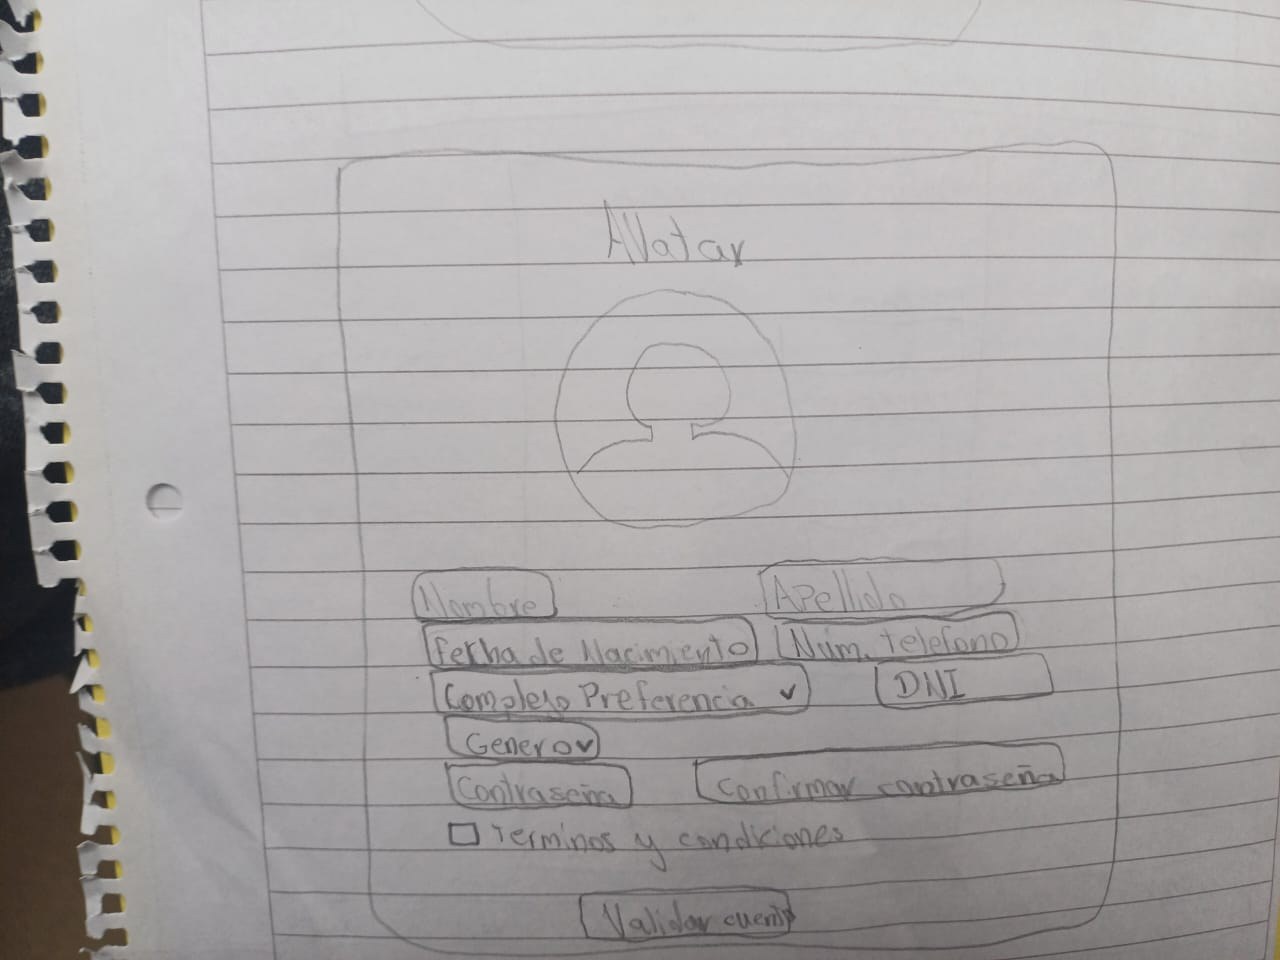 AVatar
Nombre Apellido
Fecha de Nacimiento Núm. telefono
Complejo Preferencia
DNI
Genero
Contraseña Confirmar contraseña
Terminos y condiciones
Validar cuenta